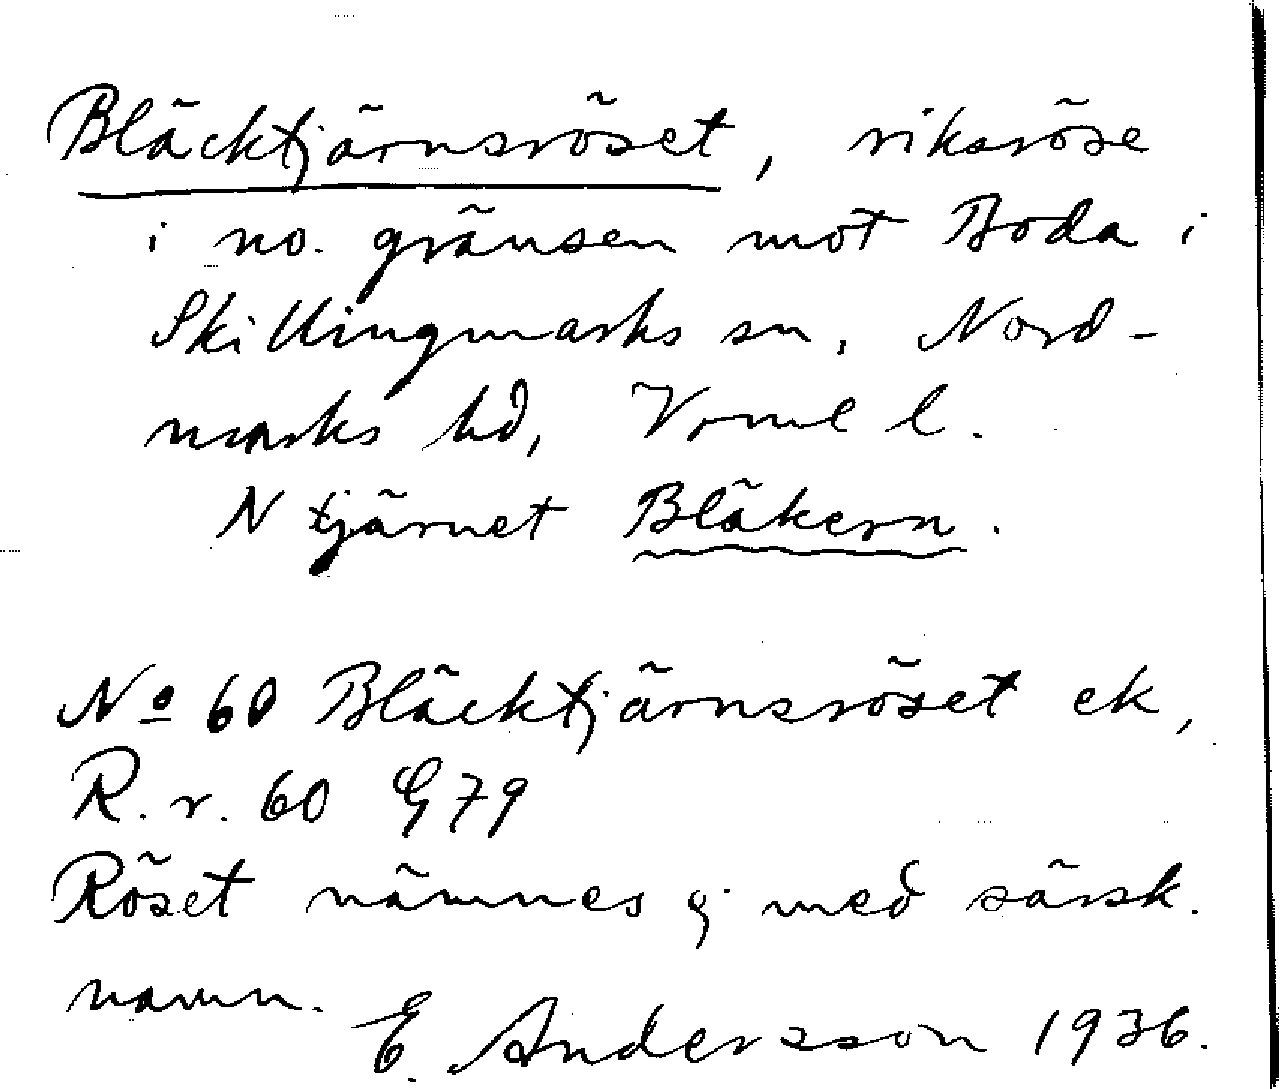 Bläcktjärnsröset, riksröse
i no. gränsen mot Boda i
Skillingmarks sn, Nord-
marks hd, Vrml l.
N tjärnet Bläkern.
No 60 Bläcktjärnsröset ek,
R. r. 60 G 79
Röset nämnes ej med särsk.
namn.
E. Andersson 1936.